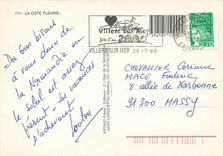 111 - LA COTE FLEURIE...
Villers sur Mer
VILLERS SUR MER 26-7-99
Des gros bisous
à vous deux de
la Normandie où
le soleil est assez
présent. Les vacances
s'achèvent.
Loulou
CHEVALLIER Corinne
MACE Frédéric
8 allée de Norvège
91300 MASSY